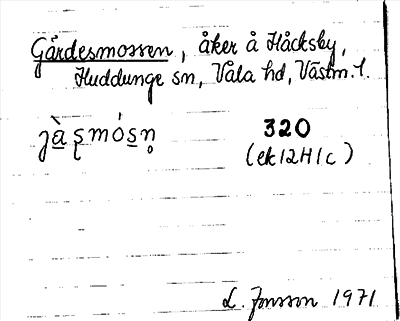 Gärdesmossen, åker å Håcksby,
Huddunge sn, Vala hd, Västm. l.
jà̱ʂmós̱n̥ 320
(ek 12H1c)
L. Jonsson 1971